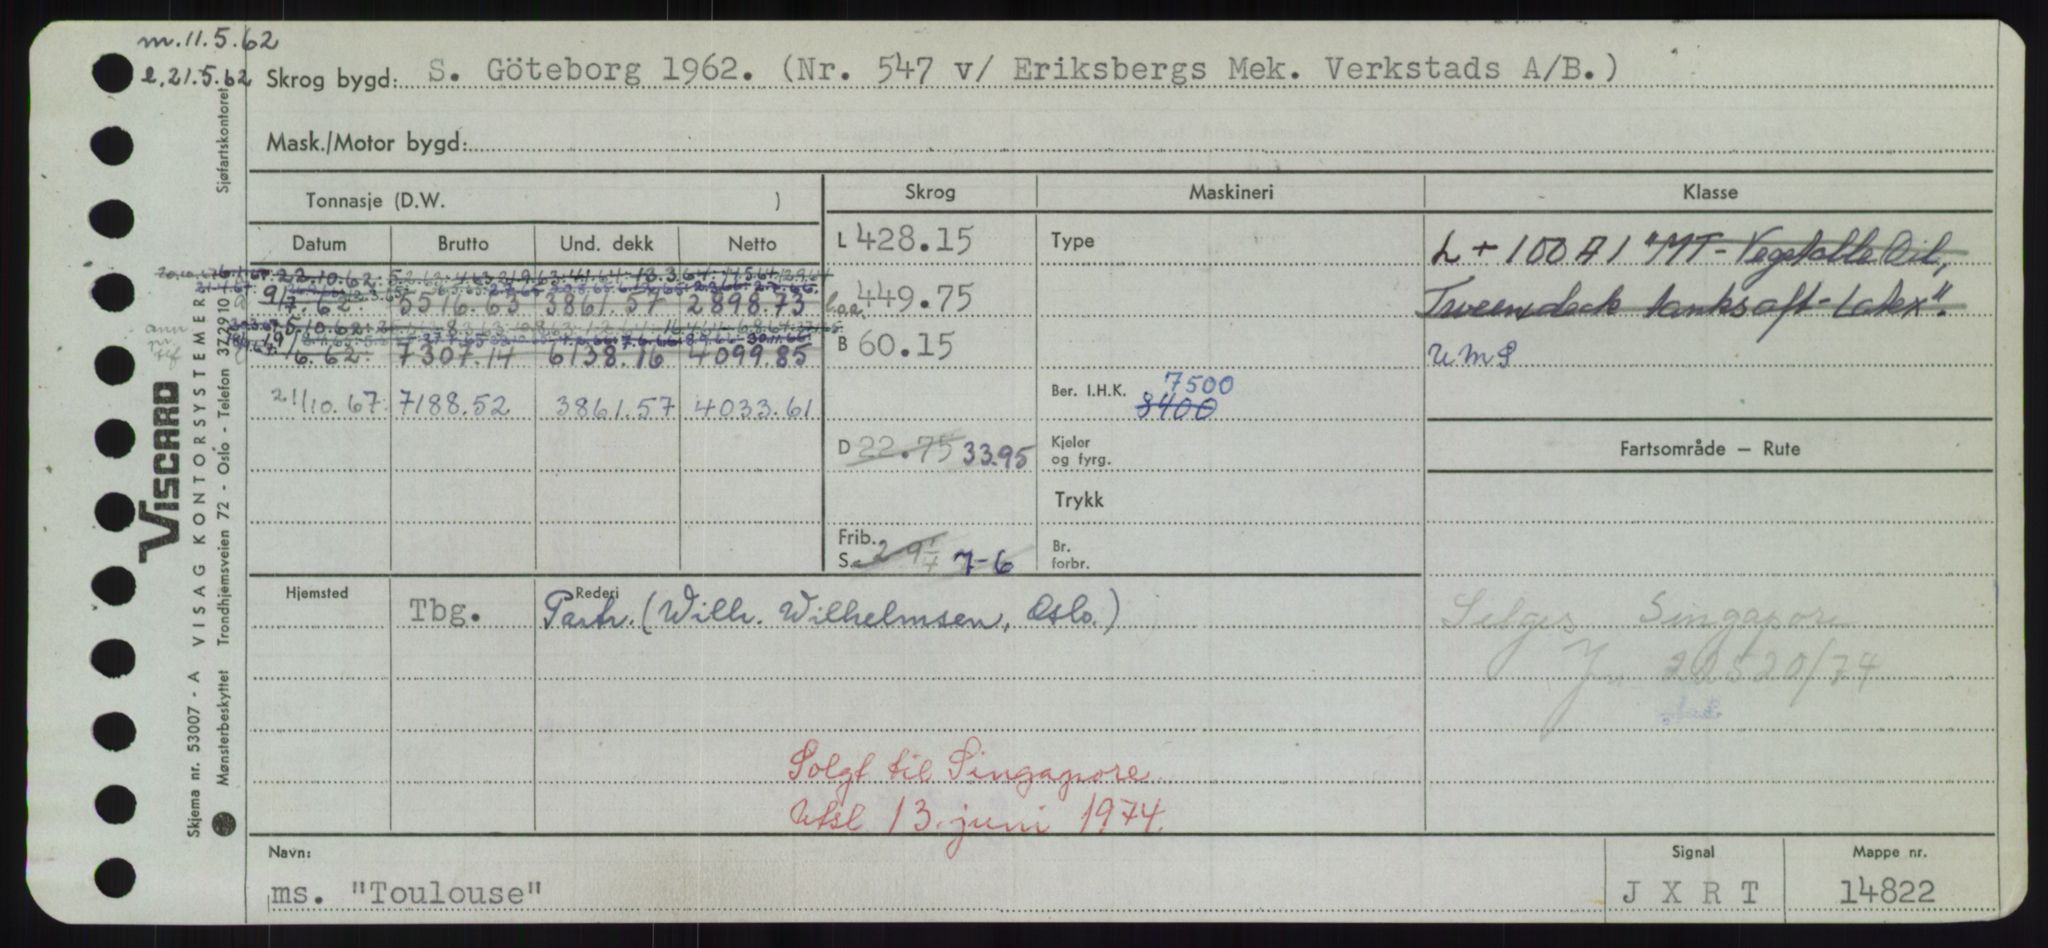 m.11.5.62
l.21.5.62
Skrog bygd: S. Göteborg 1962. (Nr. 547 v/ Eriksbergs Mek. Verkstads A/B.)
Mask./Motor bygd:
Tonnasje (D.W. )
Skrog Maskineri Klasse
Datum Brutto Und. dekk Netto
L 428.15 Type L + 100 A 1 "MT-Vegetable Oil,
9/7.62 5516.63 3861.57 2898.73 l.o.a. 449.75 Tweendeck tanks aft-Latex".
19/6.62 7307.14 6138.16 4099.85 B 60.15 UMS
21/10.67 7188.52 3861.57 4033.61
Ber. I.H.K. 7500
8400
D 22.75 33.95 Kjeler og fyrg.
Fartsområde – Rute
Trykk
Frib.
S. 2-9¼ 7-6 Br. forbr.
Hjemsted Tbg. Rederi Partr. (Wilh. Wilhelmsen, Oslo.)
Selges Singapore
Jnr 22520/74
Solgt til Singapore
Utsl 13. juni 1974.
Navn: ms. "Toulouse"
Signal JXRT
Mappe nr. 14822
VISCARD
VISAG KONTORSYSTEMER
Sjøfartskontoret
Trondhjemsveien 72 - Oslo - Telefon 372910
Skjema nr. 53007 - A
Mønsterbeskyttet